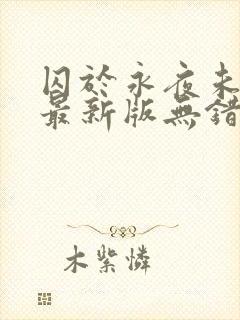 囚於永夜未
最新版無錯
木紫憐